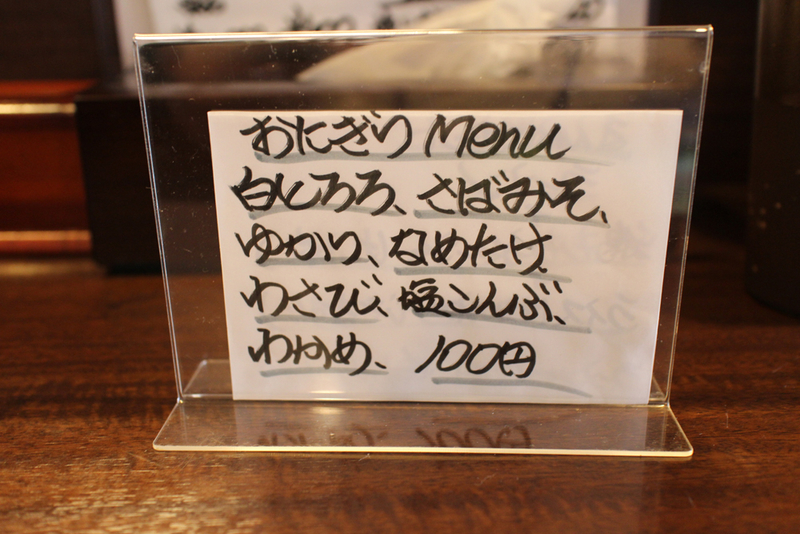 おにぎり Menu
白しろろ、さばみそ、
ゆかり、なめたけ
わさび、塩こんぶ、
わかめ、100円